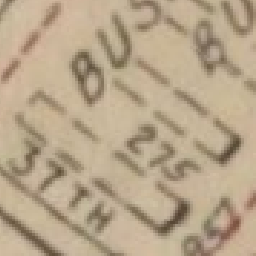 BUS
BU
275
37TH
857